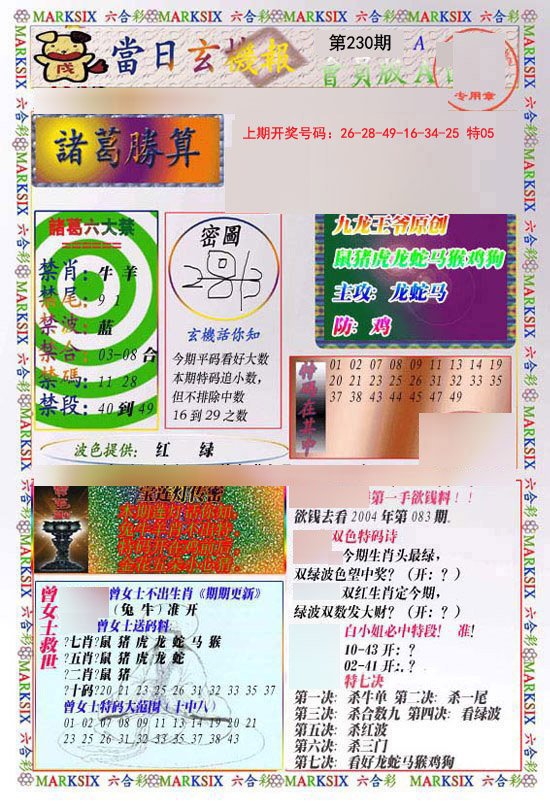 MARKSIX 六合彩 MARKSIX 六合彩 MARKSIX 六合彩 MARKSIX 六合彩
當日玄機報
第230期
A
會員版A
专用章
諸葛勝算
上期开奖号码：26-28-49-16-34-25 特05
諸葛六大禁
禁肖：牛 羊
禁尾：9 1
禁波：蓝
禁合：03-08 合
禁碼：11 28
禁段：40 到 49
密圖
玄機話你知
今期平码看好大数
本期特码追小数，
但不排除中数
16 到 29 之数
九龙王爷原创
鼠猪虎龙蛇马猴鸡狗
主攻：龙蛇马
防：鸡
特码在其中
01 02 07 08 09 11 13 14 19
20 21 23 25 26 31 32 33 35
37 38 43 44 45 47 49
波色提供： 红 绿
宝莲灯传密
第一手欲钱料！！
欲钱去看 2004 年第 083 期.
双色特码诗
今期生肖头最绿，
双绿波色望中奖？（开：？）
双红生肖定今期，
绿波双数发大财？（开：？）
白小姐必中特段！ 准！
10-43 开：？
02-41 开：.？
特七决
第一决：杀牛单 第二决：杀一尾
第三决：杀合数九 第四决：看绿波
第五决：杀红波
第六决：杀三门
第七决：看好龙蛇马猴鸡狗
曾女士救世
曾女士不出生肖《期期更新》
（兔 牛）准 开
曾女士送码料:
?七肖?鼠 猪 虎 龙 蛇 马 猴
?五肖?鼠 猪 虎 龙 蛇
?二肖?鼠 猪
?十码?20 21 23 25 26 31 32 33 35 37
曾女士特码大范围（十中八）
01 02 07 08 09 11 13 14 19 20 21
23 25 26 31 32 33 35 37 38 43
MARKSIX 六合彩 MARKSIX 六合彩 MARKSIX 六合彩 MARKSIX 六合彩